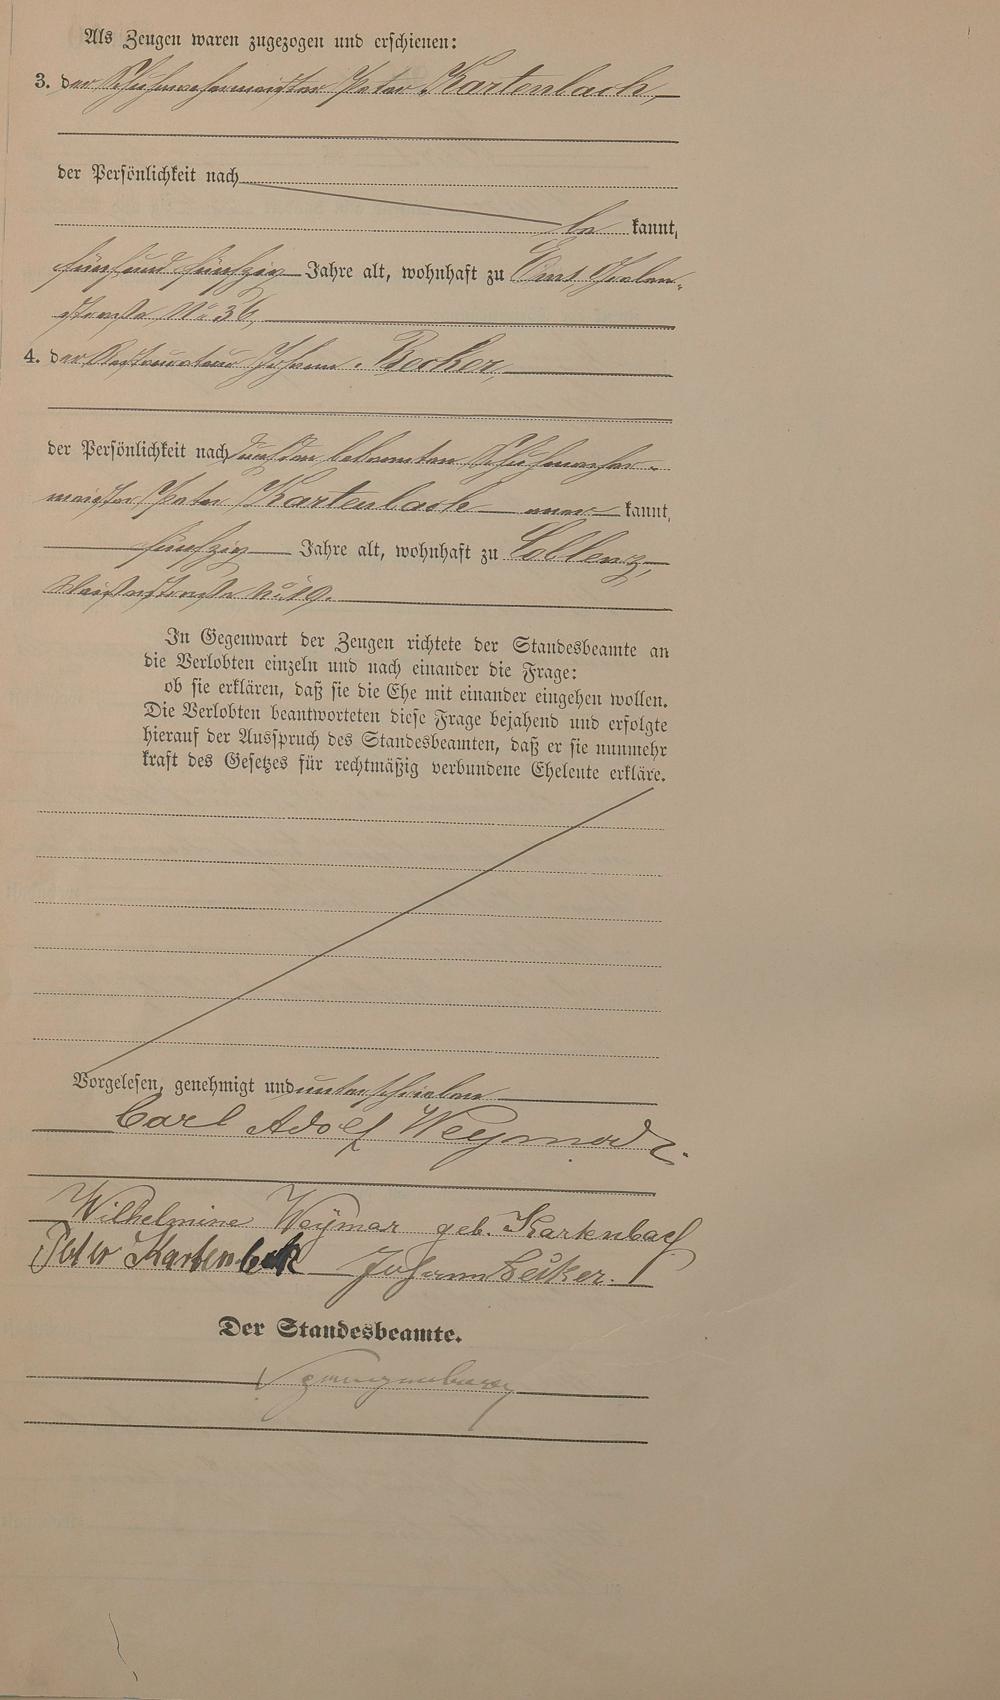 Als Zeugen waren zugezogen und erschienen:
3. der Schuhmachermeister Peter Kartenbach,
der Persönlichkeit nach
be kannt,
fünfund fünfzig Jahre alt, wohnhaft zu Ems,
straße No 36,
4. der Restaurateur Johann Becker,
der Persönlichkeit nach durch den bekannten Schuhmacher-
meister Peter Kartenbach aner kannt,
fünfzig Jahre alt, wohnhaft zu Coblenz,
No 19.
In Gegenwart der Zeugen richtete der Standesbeamte an
die Verlobten einzeln und nach einander die Frage:
ob sie erklären, daß sie die Ehe mit einander eingehen wollen.
Die Verlobten beantworteten diese Frage bejahend und erfolgte
hierauf der Ausspruch des Standesbeamten, daß er sie nunmehr
kraft des Gesetzes für rechtmäßig verbundene Eheleute erkläre.
Vorgelesen, genehmigt und unterschrieben
Carl Adolf Weymar
Wilhelmine Weymar geb. Kartenbach
Peter Kartenbach Johann Becker.
Der Standesbeamte.